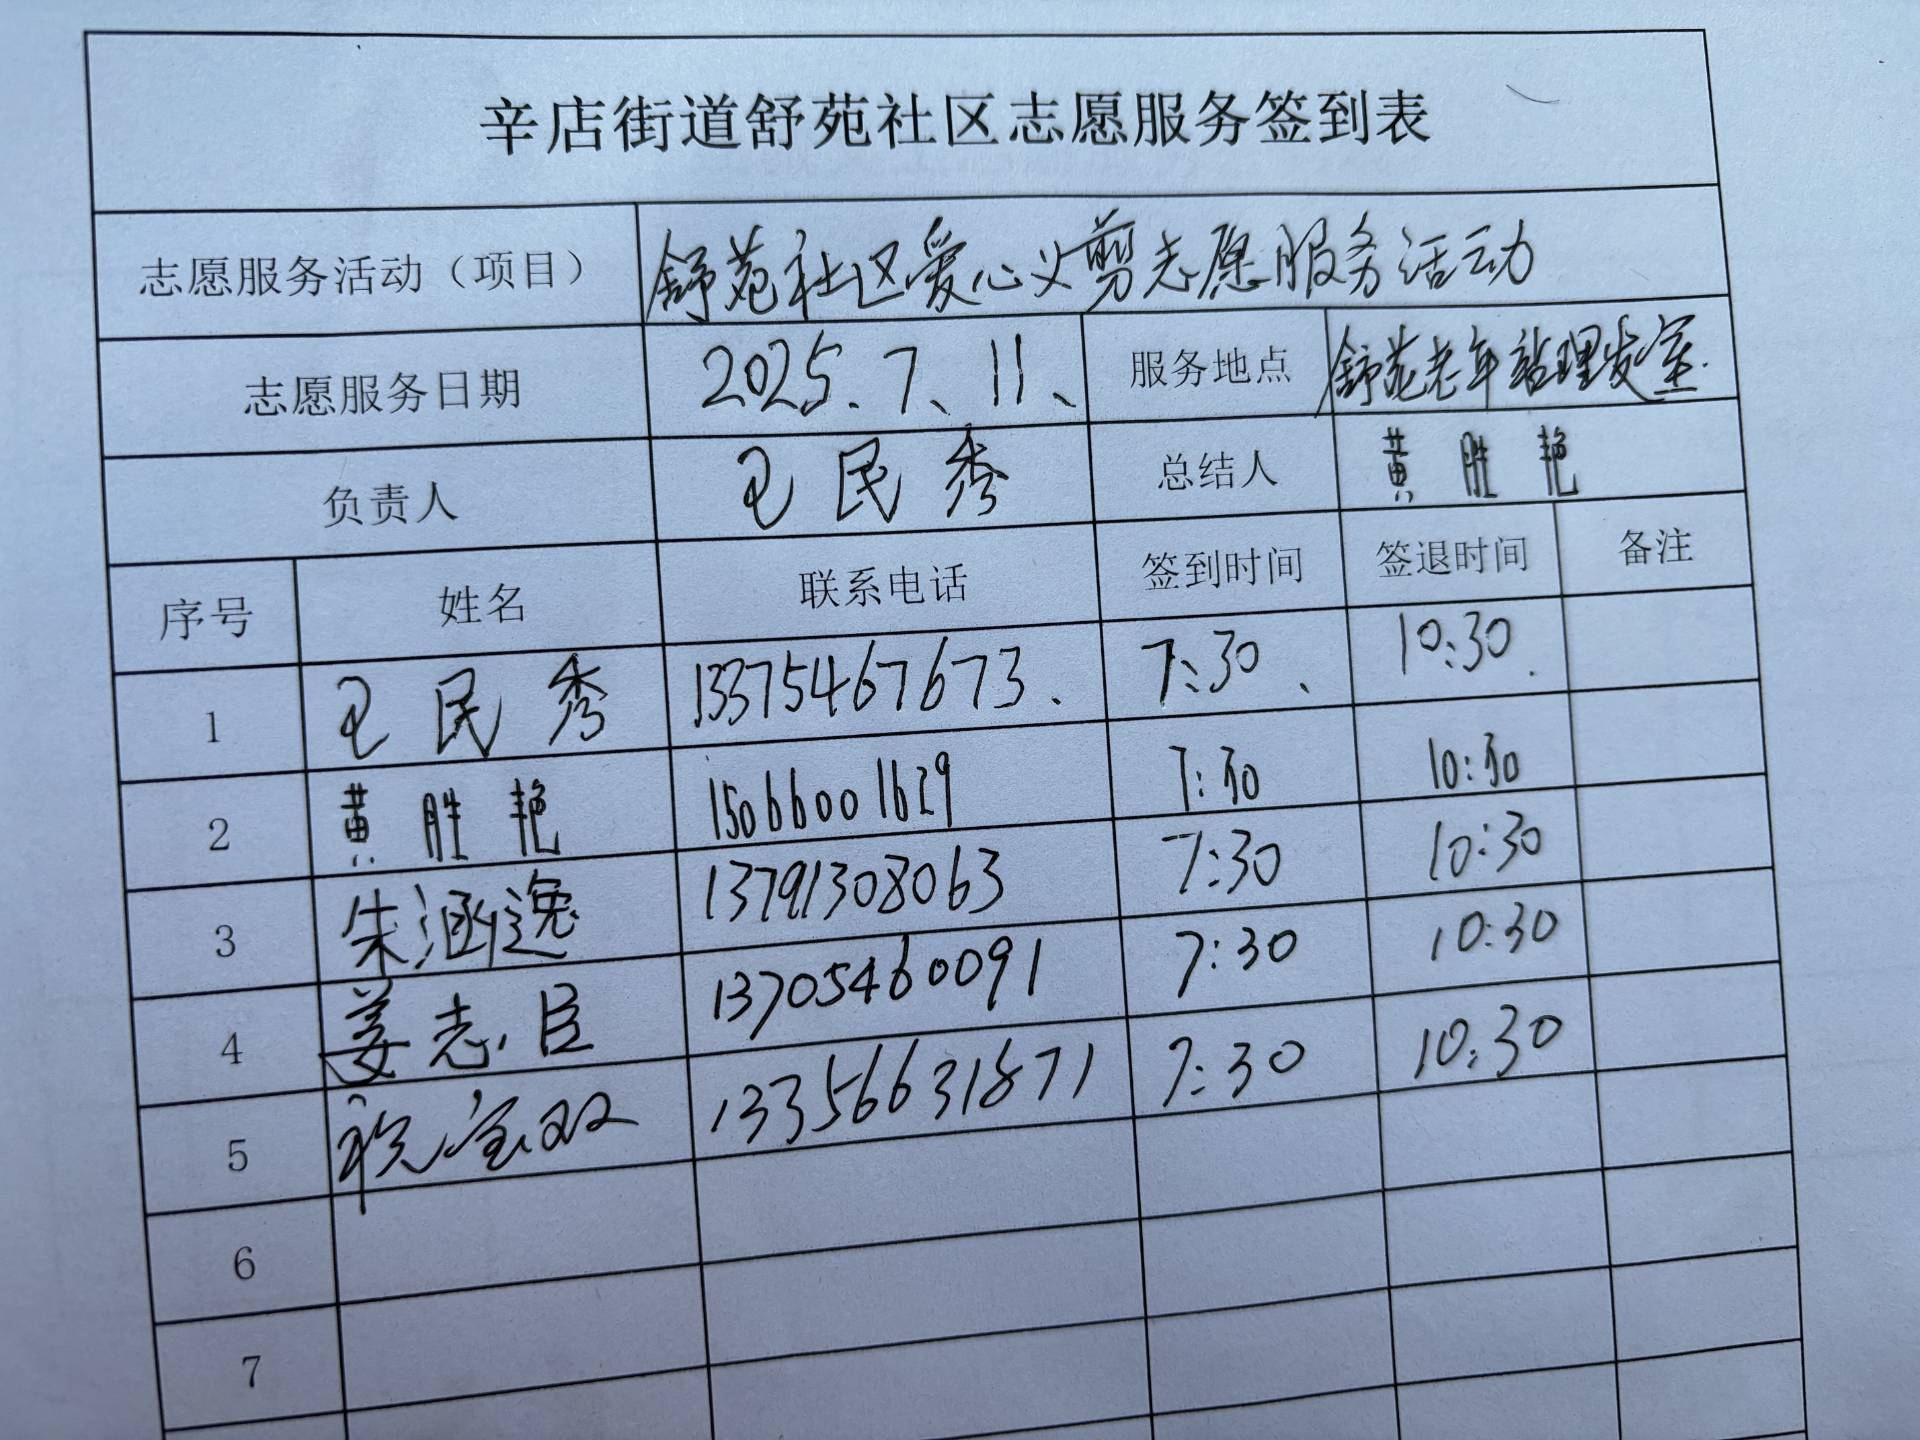 辛店街道舒苑社区志愿服务签到表
志愿服务活动（项目） 舒苑社区爱心义剪志愿服务活动
志愿服务日期 2025.7、11、 服务地点 舒苑老年站理发室.
负责人 王民秀 总结人 黄胜艳
序号 姓名 联系电话 签到时间 签退时间 备注
1 王民秀 13375467673、 7:30、 10:30.
2 黄胜艳 15066001629 7:30 10:30
3 朱涵逸 13791308063 7:30 10:30
4 姜志臣 13705460091 7:30 10:30
5 祝宝双 13356631871 7:30 10:30
6
7